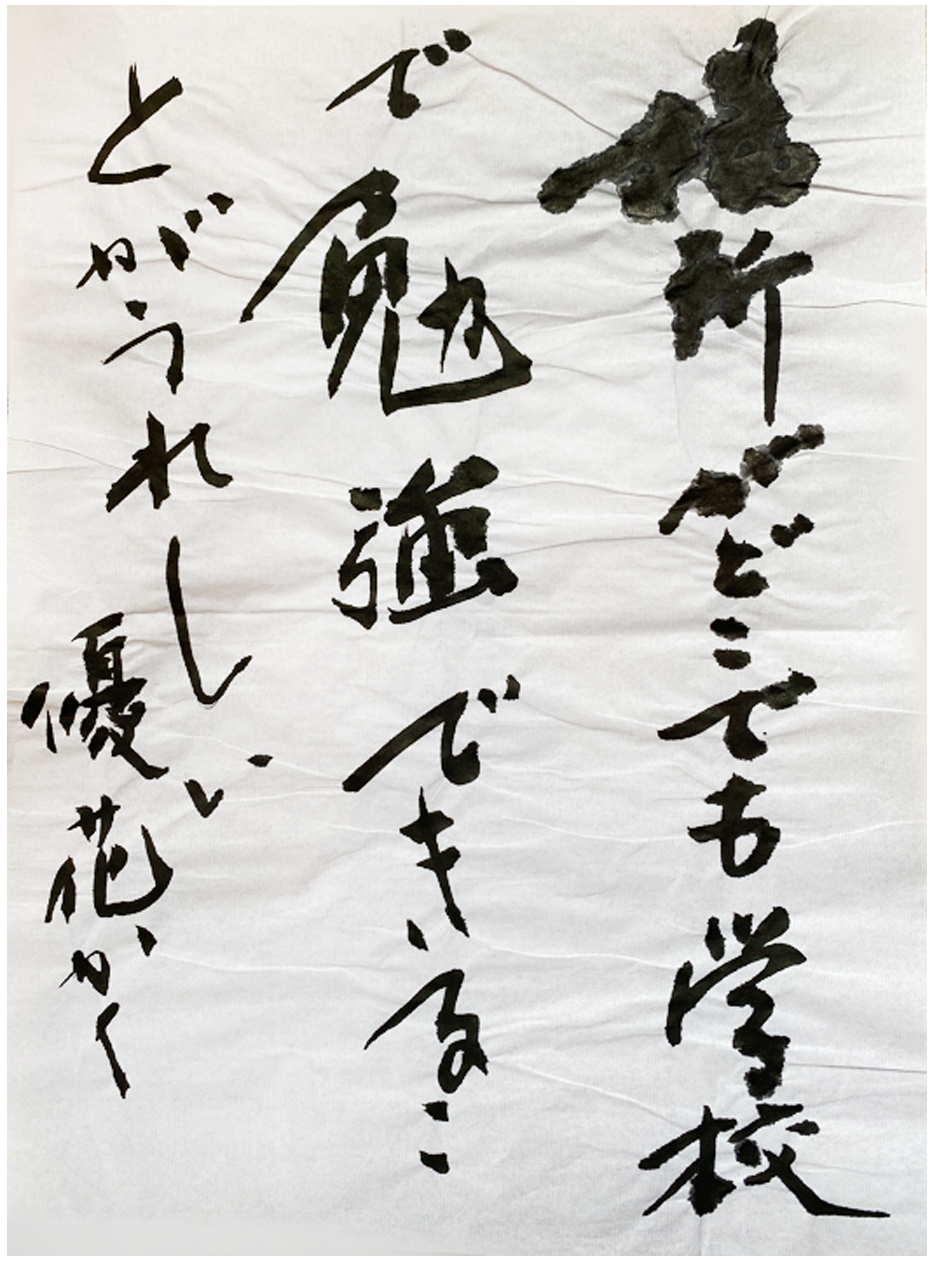 場所がどこでも学校
で勉強できるこ
とがうれしい
優花かく